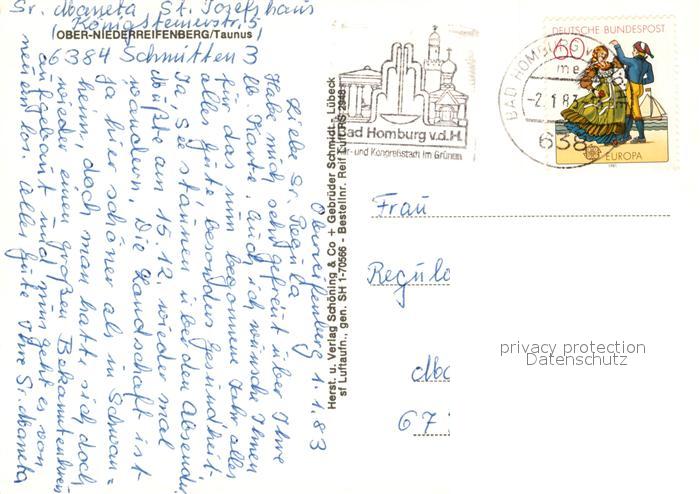 Sr. Maneta St. Josefshaus
(Königsteinerstr. 5)
OBER-NIEDERREIFENBERG/Taunus
6384 Schmitten 3
Oberreifenberg 1.1.83
Liebe Sr. Regula
Habe mich sehr gefreut über Ihre
lb. Karte. Auch ich wünsche Ihnen
für das nun begonnene Jahr alles
alles Gute, besonders Gesundheit.
Ja, Sie staunen über den Absender.
Mußte am 15.12. wieder mal
wandern. Die Landschaft ist
ja hier schöner als in Schwan=
heim, doch man hatt sich doch
wieder einen großen Bekanntenkreis
aufgebaut und nun geht es von
neuem los. Alles Gute Ihre Sr. Maneta
Herst. u. Verlag Schöning & Co + Gebrüder Schmidt - Lübeck
sf Luftaufn., gen. SH 1-70566 - Bestellnr. Reif Luft RS 2948
Bad Homburg v.d.H.
Kur- und Kongreßstadt im Grünen
BAD HOMBURG
me
-2.1.83
638
DEUTSCHE BUNDESPOST
60
EUROPA
1981
Frau
Regula
67
privacy protection
Datenschutz